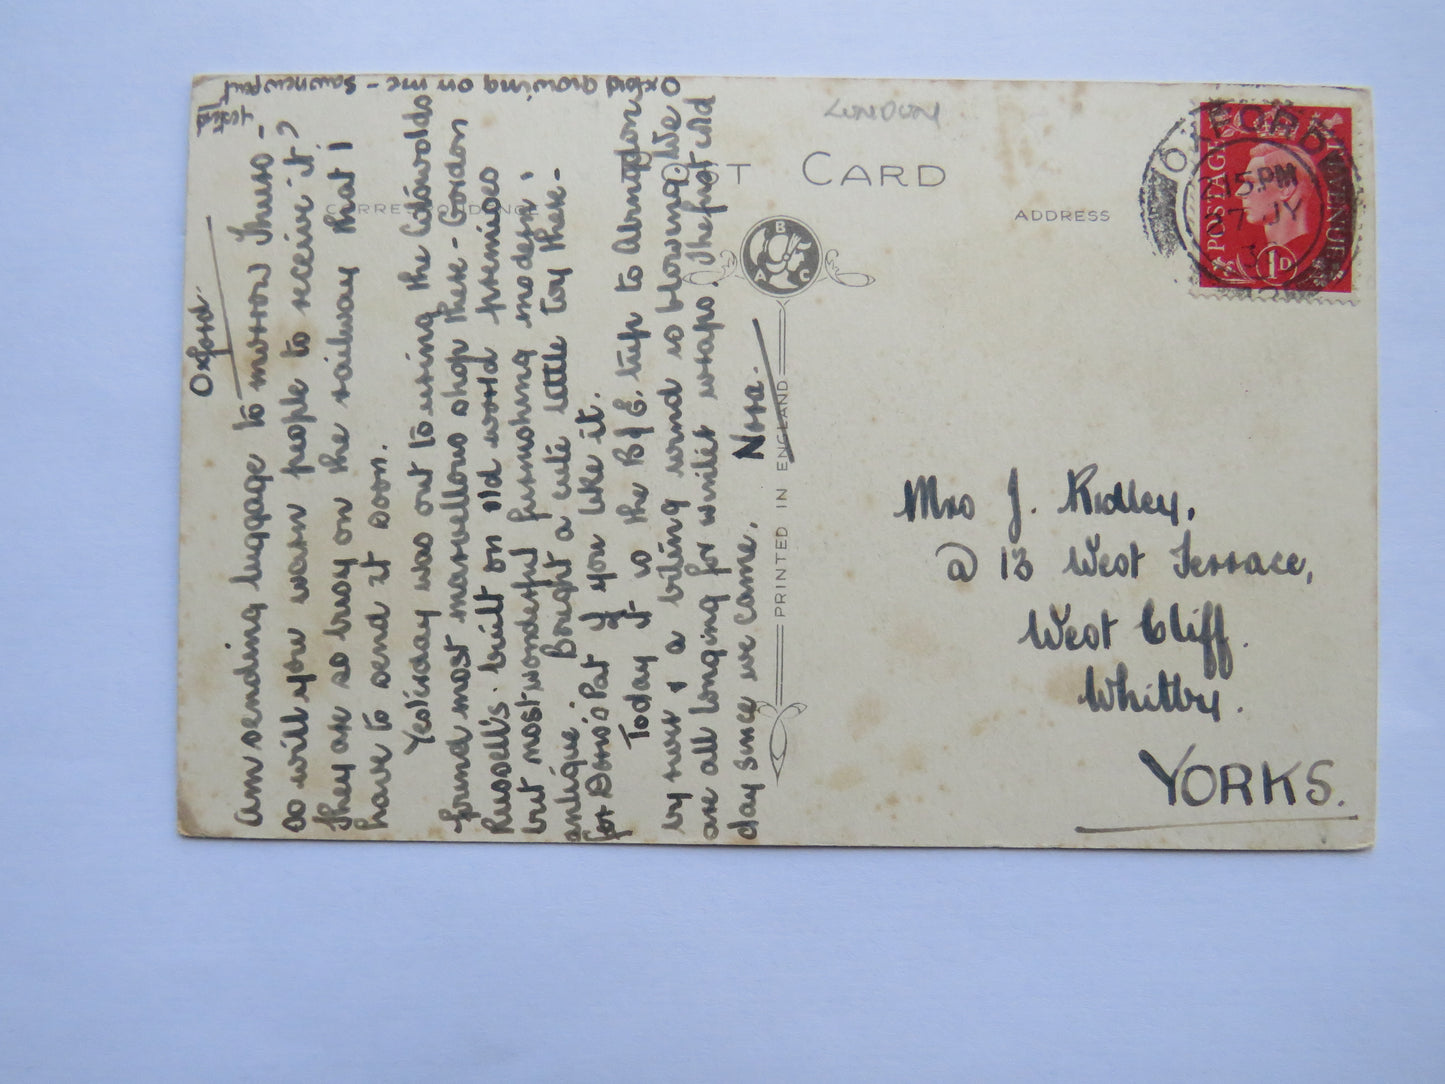 LONDON
POST CARD
CORRESPONDENCE
ADDRESS
OXFORD
2.15 PM
27 JY
3
POSTAGE
REVENUE
1D
A B C
PRINTED IN ENGLAND
Oxford.
Am sending luggage to morrow Thurs -
so will you warn people to receive it?
They are so busy on the railway that I
have to send it soon.
Yesterday was out touring the Cotswolds
found most marvellous shop there - Gordon
Russell's. built on old world premises
but most wonderful furnishing modern &
antique. Bought a cute little toy there -
for Doris's Pat if you like it.
Today it is the B & E. trip to Abingdon
by river & a biting wind is blowing. We
are all longing for winter wraps. The first cold
day since we came. Nora.
Oxford growing on me - Saw new part
yesterday
Mrs J. Ridley,
@ 13 West Terrace,
West Cliff.
Whitby.
YORKS.